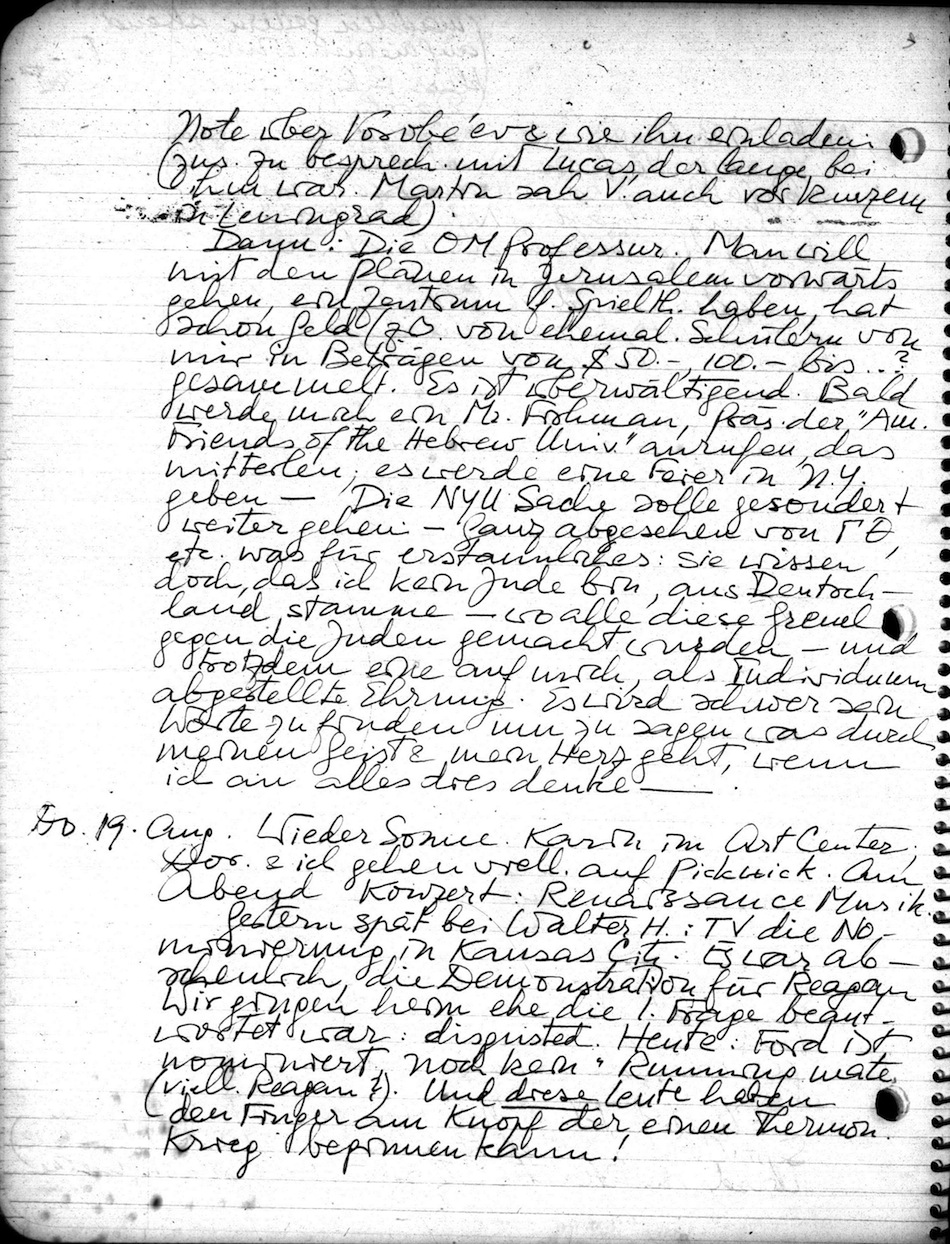 Note über Vorobé'ev & wie ihn einladen
(zus. zu besprech. mit Lucas, der lange bei
ihm war. Martin sah V. auch vor kurzem
in Leningrad).
Dann: Die OM Professur. Man will
mit den Plänen in Jerusalem vorwärts
gehen, ein Zentrum f. Spielth. haben, hat
schon Geld (zB von ehemal. Schülern von
mir in Beträgen von $50.-, 100.- bis ..?
gesammelt. Es ist überwältigend. Bald
werde mich ein Mr. Frohman, Präs. der "Am.
Friends of the Hebrew Univ." anrufen, das
mitteilen; es werde eine Feier in N.Y.
geben — Die NYU Sache solle gesondert
weiter gehen — Ganz abgesehen von
etc. was für erstaunliches: sie wissen
doch, das ich kein Jude bin, aus Deutsch-
land stamme — wo alle diese Greuel
gegen die Juden gemacht wurden — und
trotzdem eine auf mich, als Individuum
abgestellte Ehrung. Es wird schwer sein
Worte zu finden um zu sagen was durch
meinen Geist & mein Herz geht, wenn
ich an alles dies denke — .
Do. 19. Aug. Wieder Sonne. Karin im Art Center.
Dor. & ich gehen viell. auf Picknick. Am
Abend Konzert: Renaissance Musik.
Gestern spät bei Walter H.: TV die No-
minierung in Kansas City. Es war ab-
scheulich, die Demonstration für Reagan
Wir gingen heim ehe die 1. Frage beant-
wortet war: disgusted. Heute: Ford ist
nominiert, noch kein "Running mate
(viell. Reagan?). Und diese Leute haben
den Finger am Knopf der einen Thermon.
Krieg beginnen kann!